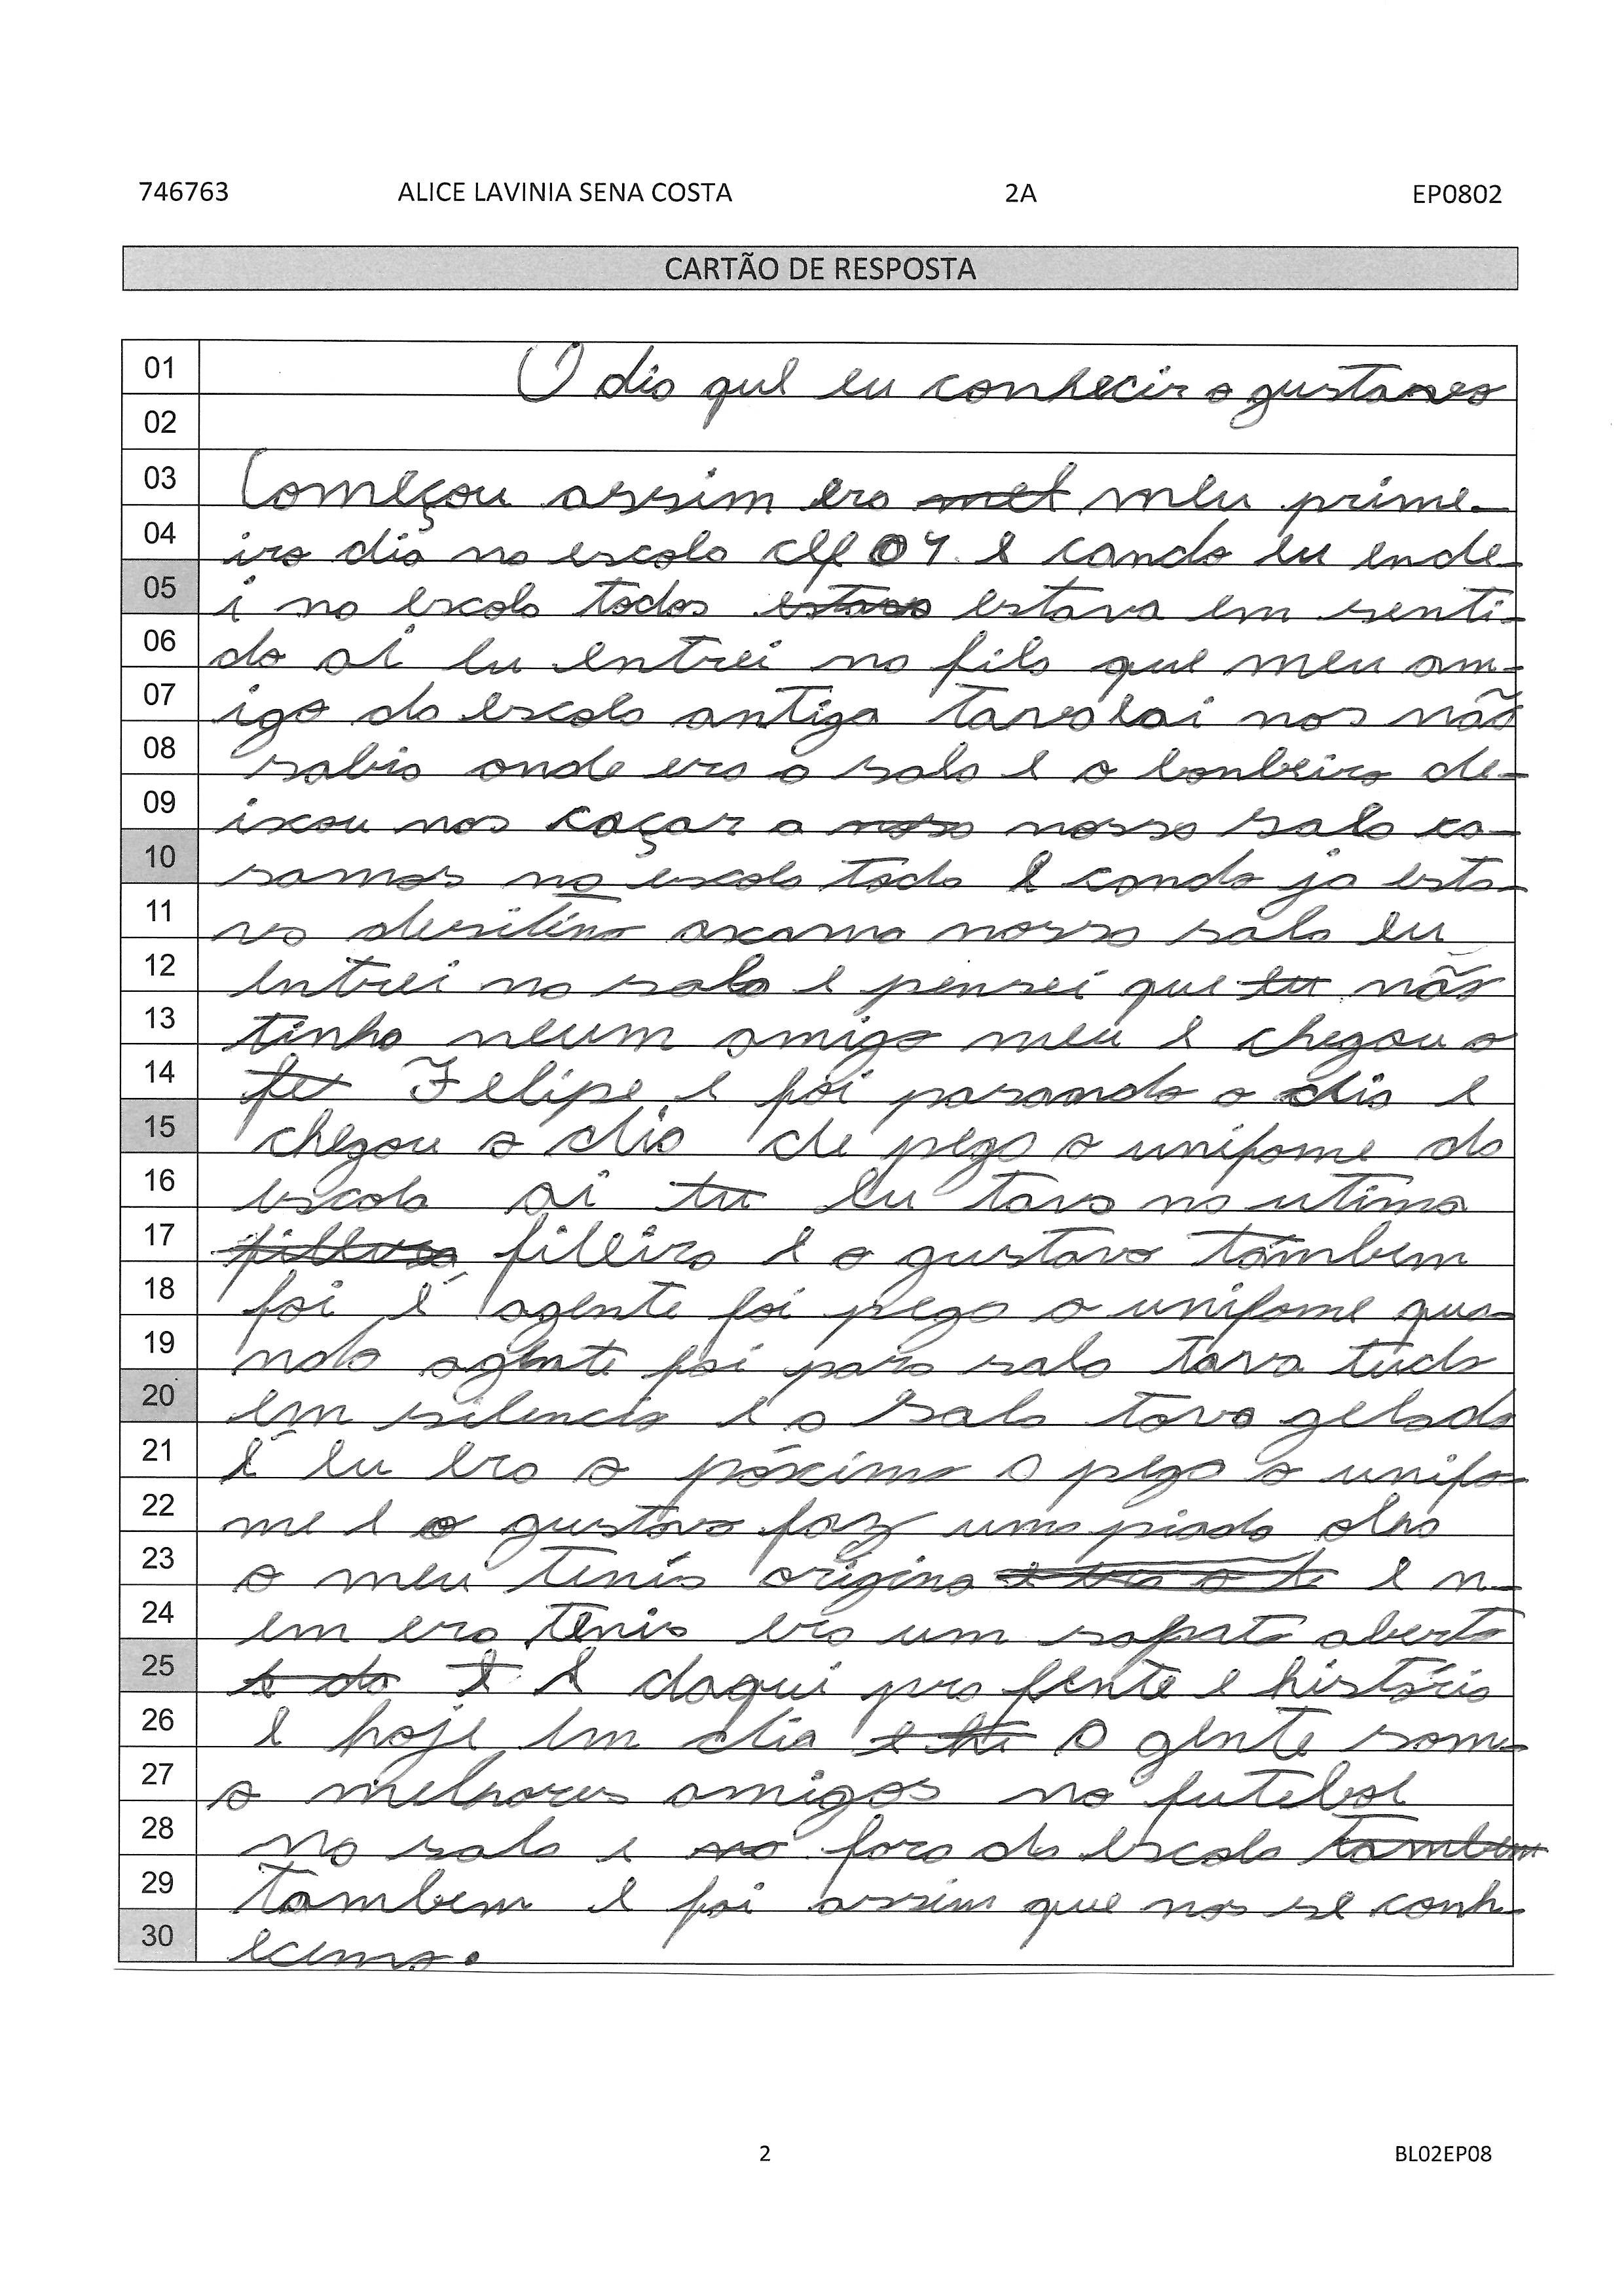 746763 ALICE LAVINIA SENA COSTA 2A EP0802
CARTÃO DE RESPOSTA
01 O dia que eu conhecir o gustavo
02
03 Começou assim era met meu prime-
04 iro dia na escola cef 04 e cando eu ende-
05 i na escola todos estava estava em senti-
06 do ai eu entrei na fila que meu am-
07 igo da escola antiga tava lai nos não
08 sabia onde era a sala e o bonbeiro de-
09 ixou nos caçar a nosa nossa sala ca-
10 samos na escola toda e condo ja esta-
11 va axamo nossa sala eu
12 entrei na sala e pensei que eu não
13 tinha neum amigo meu e chegou o
14 fe Felipe e foi pasando o dia e
15 chegou o dia de pega o unifome da
16 escola ai tu eu tava na utima
17 fileira e o gustavo tambem
18 foi e agente foi pega o unifome qua-
19 ndo agente foi para sala tava tudo
20 em silencio e a sala tava gelada
21 E eu era o póximo a pega o unifo-
22 me e o gustavo faz uma piada olha
23 o meu tenis origina e n-
24 em era tenis era um sapato aberto
25 e da E E daqui pra fente e história
26 e hoje em dia a gente som-
27 o melhores amigos no futebol
28 na sala e na fora da escola tambem
29 tambem e foi assim que nos se conh-
30 ecemo.
2 BL02EP08